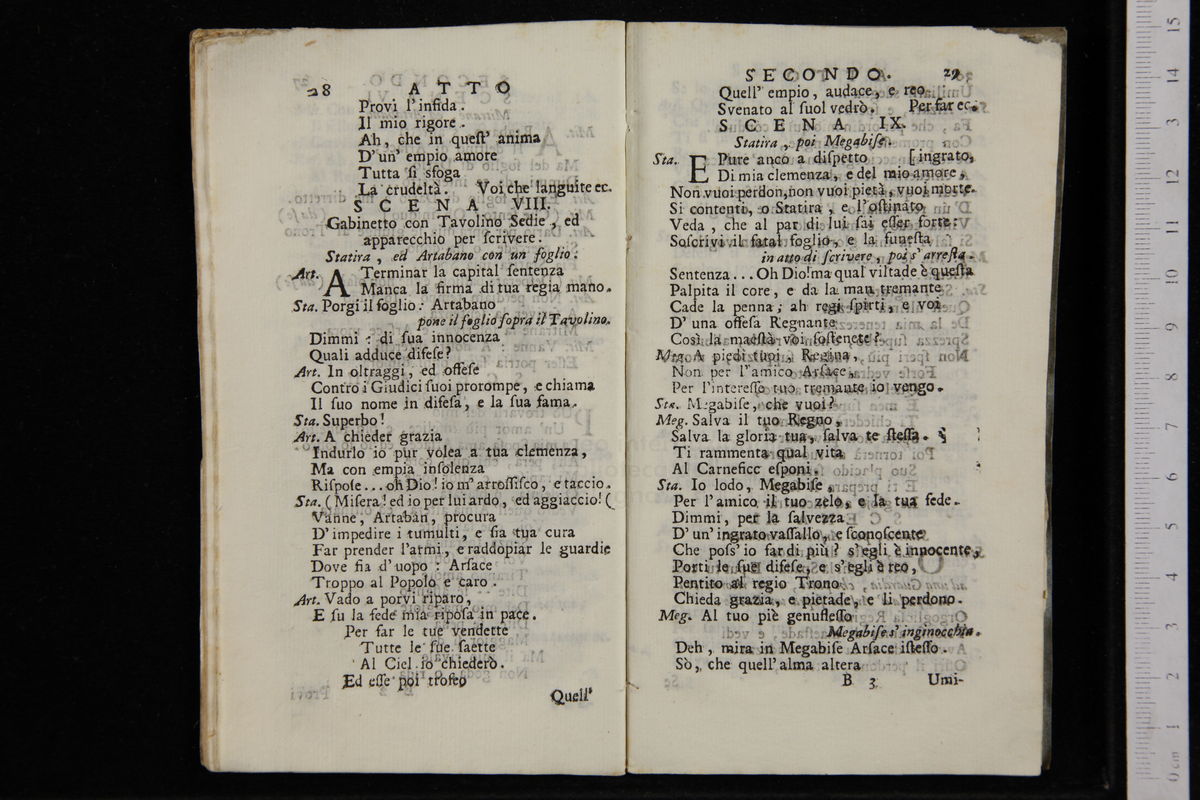 28 ATTO
Provi l'infida.
Il mio rigore.
Ah, che in queſt' anima
D'un' empio amore
Tutta ſi sfoga
La crudeltà. Voi che languite ec.
SCENA VIII.
Gabinetto con Tavolino Sedie, ed
apparecchio per ſcrivere.
Statira, ed Artabano con un foglio.
Art. A Terminar la capital ſentenza
Manca la firma di tua regia mano.
Sta. Porgi il foglio: Artabano
pone il foglio ſopra il Tavolino.
Dimmi: di ſua innocenza
Quali adduce difeſe?
Art. In oltraggi, ed offeſe
Contro i Giudici ſuoi prorompe, e chiama
Il ſuo nome in difeſa, e la ſua fama.
Sta. Superbo!
Art. A chieder grazia
Indurlo io pur volea a tua clemenza,
Ma con empia inſolenza
Riſpoſe... oh Dio! io m' arroſſiſco, e taccio.
Sta. (Miſera! ed io per lui ardo, ed aggiaccio! (
Vanne, Artaban, procura
D' impedire i tumulti, e ſia tua cura
Far prender l'armi, e raddopiar le guardie
Dove ſia d'uopo: Arſace
Troppo al Popolo e caro.
Art. Vado a porvi riparo,
E ſu la fede mia ripoſa in pace.
Per far le tue vendette
Tutte le ſue ſaette
Al Ciel io chiederò.
Ed eſſe poi trofeo
Quell'
SECONDO. 29
Quell' empio, audace, e reo
Svenato al ſuol vedrò. Per far ec.
SCENA IX.
Statira, poi Megabiſe.
Sta. E Pure anco a diſpetto [ingrato,
Di mia clemenza, e del mio amore,
Non vuoi perdon, non vuoi pietà, vuoi morte.
Si contenti, o Statira, e l'oſtinato
Veda, che al par di lui ſai eſſer forte:
Soſcrivi il fatal foglio, e la funeſta
in atto di ſcrivere, poi s' arreſta.
Sentenza... Oh Dio! ma qual viltade è queſta
Palpita il core, e da la man tremante
Cade la penna; ah regi ſpirti, e voi
D' una offeſa Regnante
Così la maeſtà voi ſoſtenete?
Meg. A piedi tuoi, Regina,
Non per l'amico Arſace,
Per l'intereſſo tuo tremante io vengo.
Sta. Megabiſe, che vuoi?
Meg. Salva il tuo Regno,
Salva la gloria tua, ſalva te ſteſſa.
Ti rammenta qual vita
Al Carnefice eſponi.
Sta. Io lodo, Megabiſe,
Per l'amico il tuo zelo, e la tua fede.
Dimmi, per la ſalvezza
D' un' ingrato vaſſallo, e ſconoſcente
Che poſs' io far di più? s'egli è innocente,
Porti le ſue difeſe, e s'egli è reo,
Pentito al regio Trono
Chieda grazia, e pietade, e li perdono.
Meg. Al tuo piè genufleſſo
Megabiſe s' inginocchia.
Deh, mira in Megabiſe Arſace iſteſſo.
Sò, che quell' alma altera
B 3 Umi-